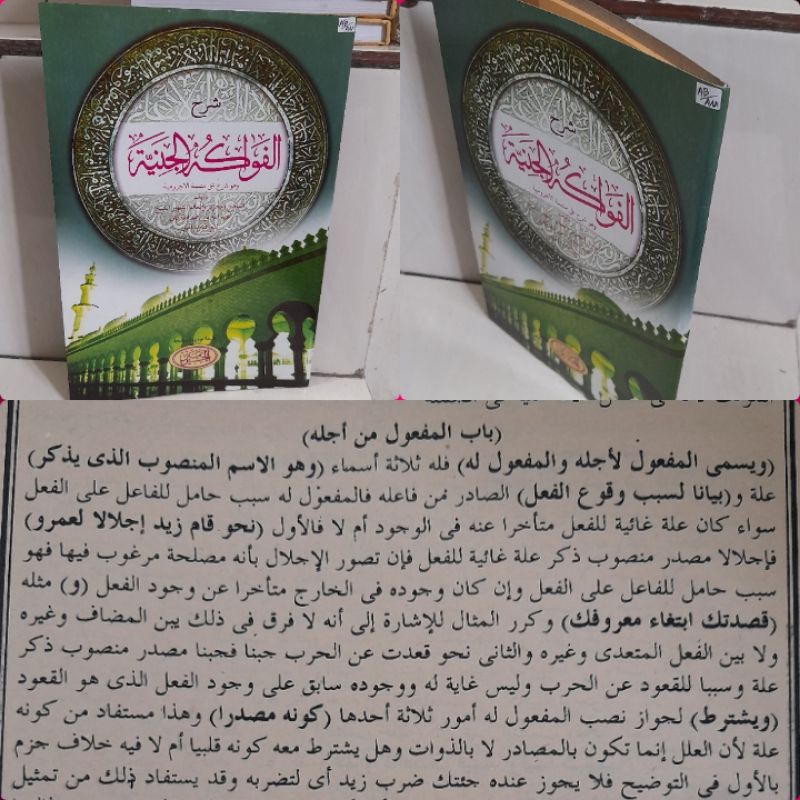 شرح
الفواكه الجنية
وهو شرح على متممة الآجرومية
AB/AW
شرح
الفواكه الجنية
AB/AW
(باب المفعول من أجله)
(ويسمى المفعول لأجله والمفعول له) فله ثلاثة أسماء (وهو الاسم المنصوب الذى يذكر)
علة و(بيانا لسبب وقوع الفعل) الصادر من فاعله فالمفعول له سبب حامل للفاعل على الفعل
سواء كان علة غائية للفعل متأخرا عنه فى الوجود أم لا فالأول (نحو قام زيد إجلالا لعمرو)
فإجلالا مصدر منصوب ذكر علة غائية للفعل فإن تصور الإجلال بأنه مصلحة مرغوب فيها فهو
سبب حامل للفاعل على الفعل وإن كان وجوده فى الخارج متأخرا عن وجود الفعل (و) مثله
(قصدتك ابتغاء معروفك) وكرر المثال للإشارة إلى أنه لا فرق فى ذلك بين المضاف وغيره
ولا بين الفعل المتعدى وغيره والثانى نحو قعدت عن الحرب جبنا فجبنا مصدر منصوب ذكر
علة وسببا للقعود عن الحرب وليس غاية له ووجوده سابق على وجود الفعل الذى هو القعود
(ويشترط) لجواز نصب المفعول له أمور ثلاثة أحدها (كونه مصدرا) وهذا مستفاد من كونه
علة لأن العلل إنما تكون بالمصادر لا بالذوات وهل يشترط معه كونه قلبيا أم لا فيه خلاف جزم
بالأول فى التوضيح فلا يجوز عنده جئتك ضرب زيد أى لتضربه وقد يستفاد ذلك من تمثيل